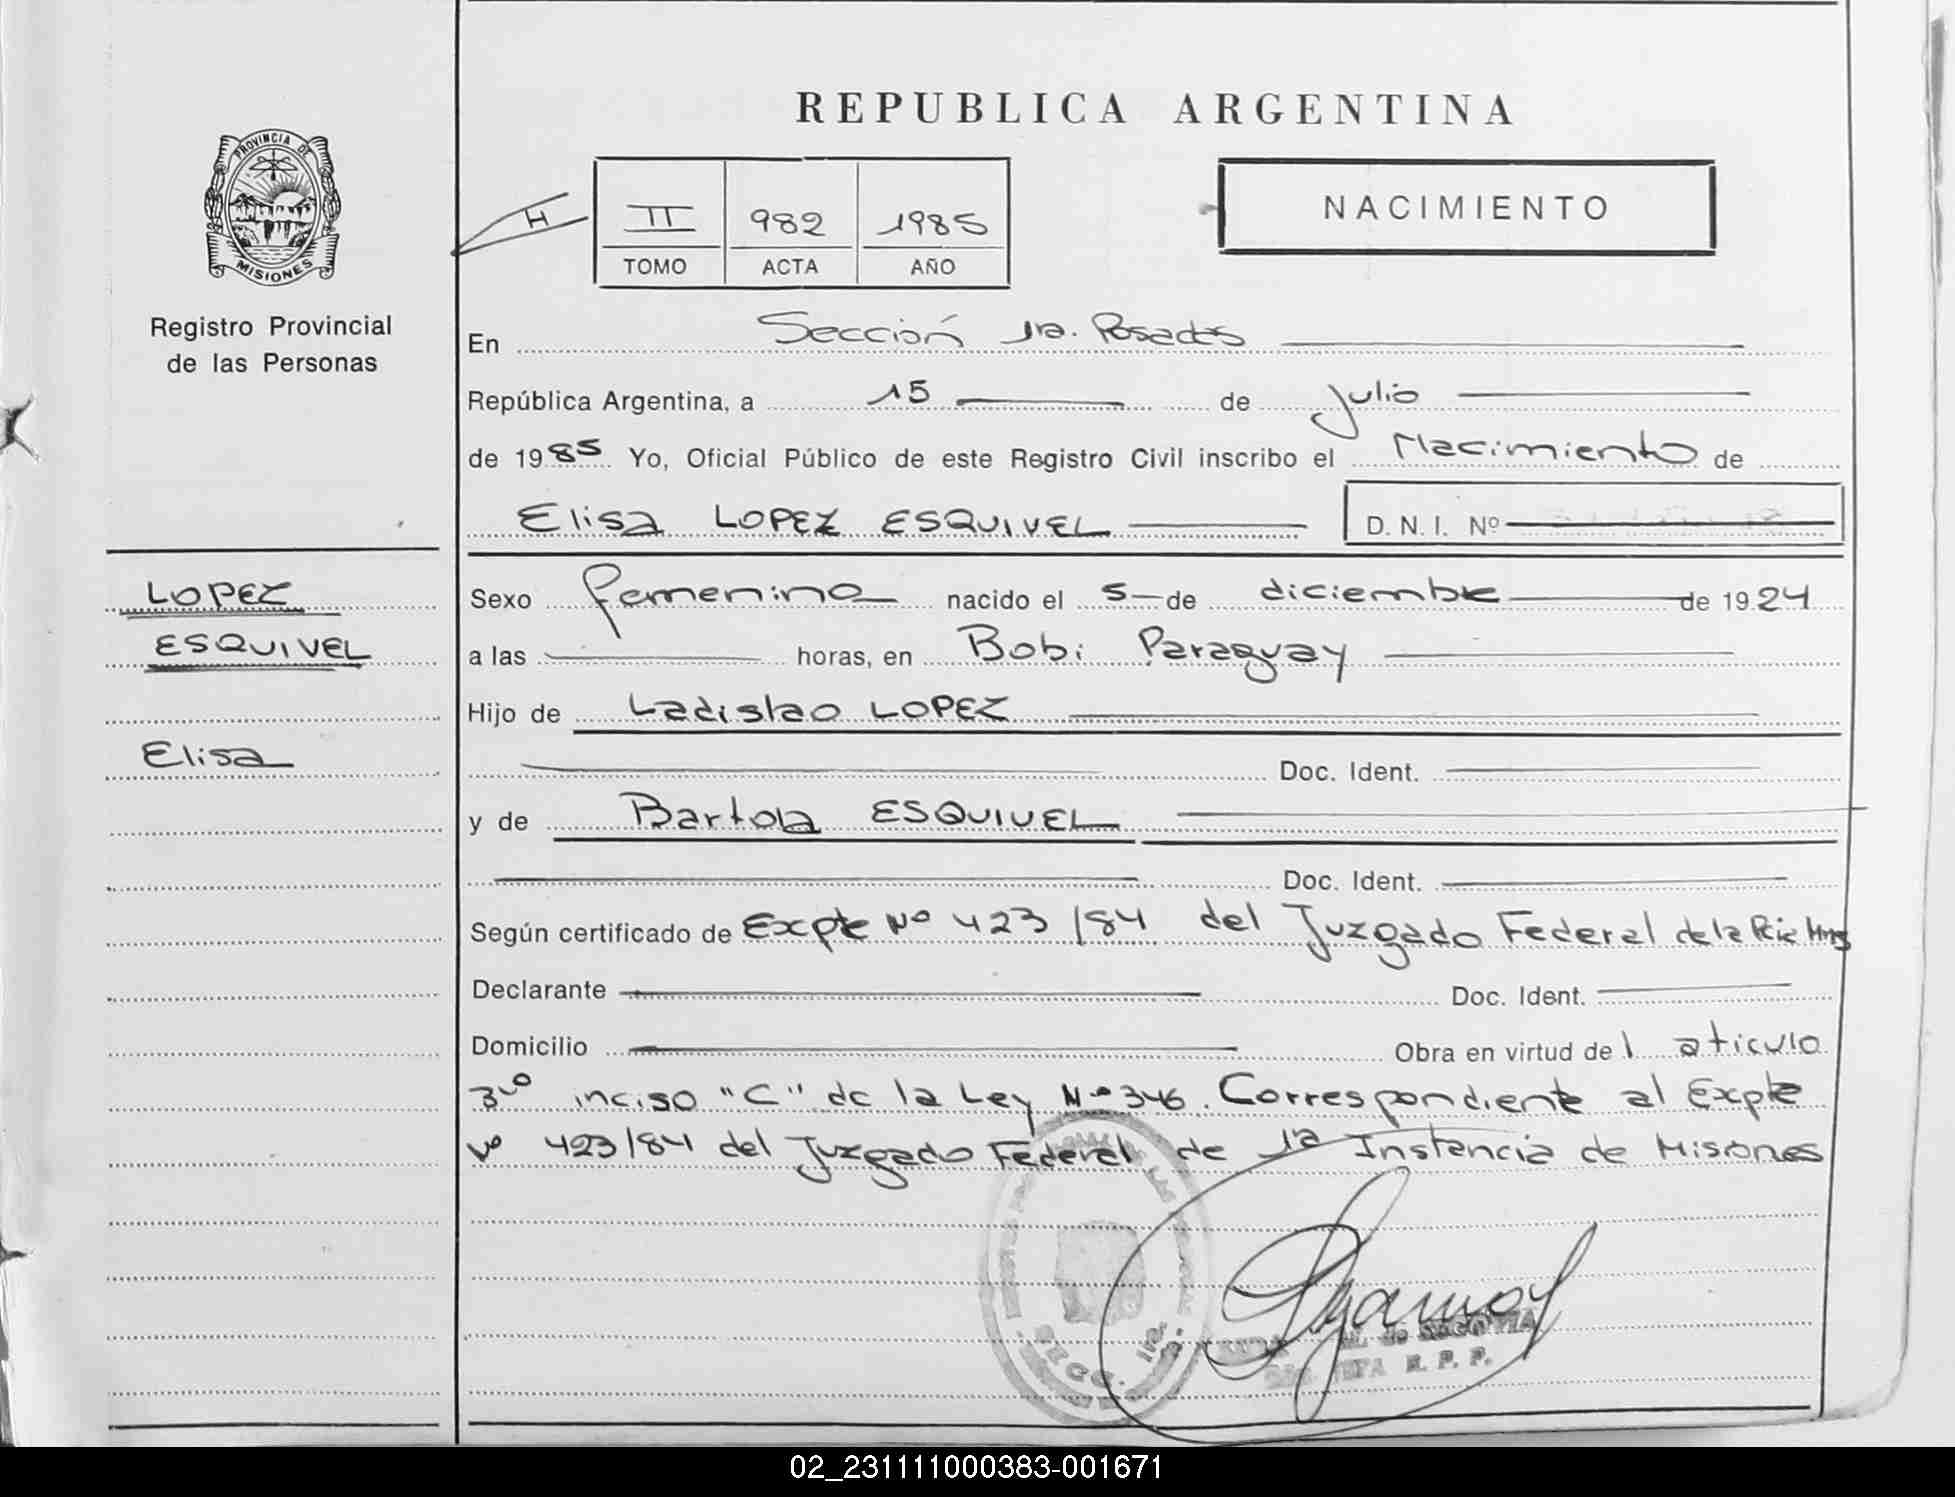 REPUBLICA ARGENTINA
PROVINCIA DE
MISIONES
Registro Provincial
de las Personas
H
II 982 1985
TOMO ACTA AÑO
NACIMIENTO
En Sección 1ra. Posadas
República Argentina, a 15 de Julio
de 1985 Yo, Oficial Público de este Registro Civil inscribo el Nacimiento de
Elisa LOPEZ ESQUIVEL D. N. I. Nº
LOPEZ
ESQUIVEL
Elisa
Sexo femenino nacido el 5 de diciembre de 1924
a las horas, en Bobi Paraguay
Hijo de Ladislao LOPEZ
Doc. Ident.
y de Bartola ESQUIVEL
Doc. Ident.
Según certificado de Expte Nº 423/84 del Juzgado Federal de la
Declarante Doc. Ident.
Domicilio Obra en virtud del aticulo
3º inciso "C" de la Ley Nº 346. Correspondiente al Expte
Nº 423/84 del Juzgado Federal de 1ª Instancia de Misiones
SECC. 1ra.
de SEGOVIA
JEFA R. P. P.
02_231111000383-001671